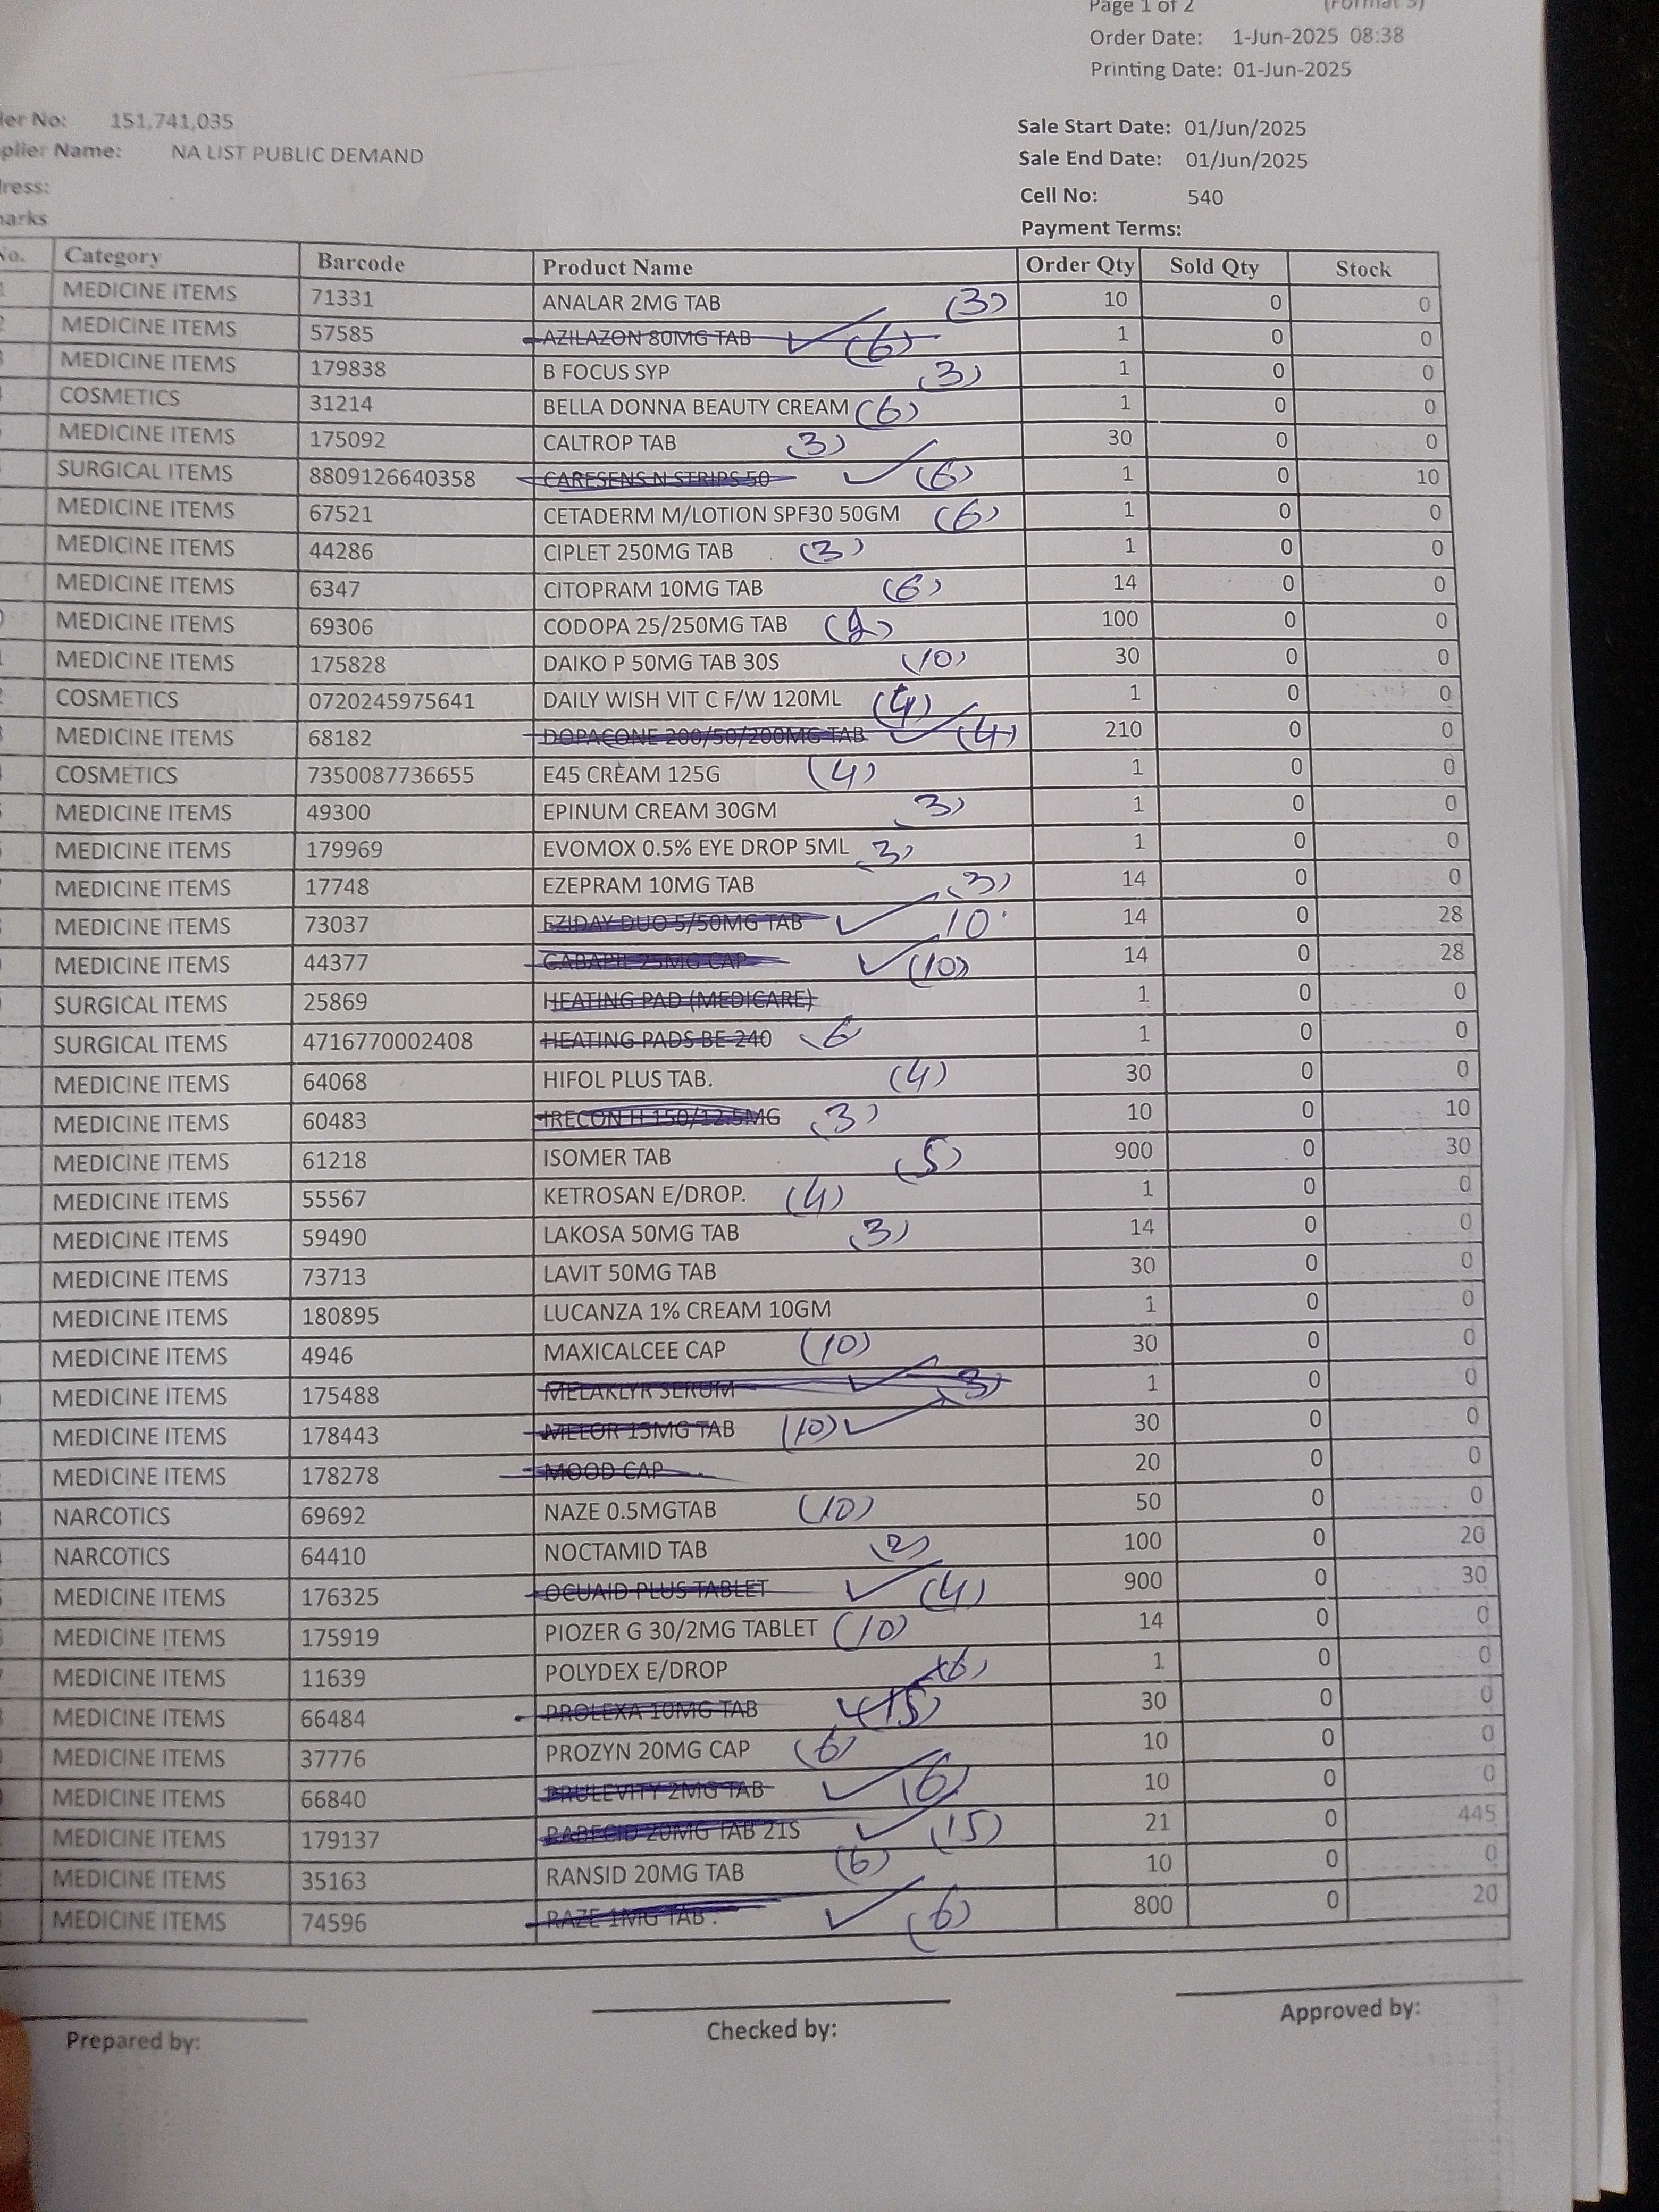 Page 1 of 2 (Format 3)
Order Date: 1-Jun-2025 08:38
Printing Date: 01-Jun-2025
der No: 151,741,035
Sale Start Date: 01/Jun/2025
plier Name: NA LIST PUBLIC DEMAND
Sale End Date: 01/Jun/2025
ress:
Cell No: 540
arks
Payment Terms:
No. Category Barcode Product Name Order Qty Sold Qty Stock
MEDICINE ITEMS 71331 ANALAR 2MG TAB (3) 10 0 0
MEDICINE ITEMS 57585 AZILAZON 80MG TAB ✓ (6) 1 0 0
MEDICINE ITEMS 179838 B FOCUS SYP (3) 1 0 0
COSMETICS 31214 BELLA DONNA BEAUTY CREAM (6) 1 0 0
MEDICINE ITEMS 175092 CALTROP TAB (3) 30 0 0
SURGICAL ITEMS 8809126640358 CARESENS N STRIPS 50 ✓ (6) 1 0 10
MEDICINE ITEMS 67521 CETADERM M/LOTION SPF30 50GM (6) 1 0 0
MEDICINE ITEMS 44286 CIPLET 250MG TAB (3) 1 0 0
MEDICINE ITEMS 6347 CITOPRAM 10MG TAB (6) 14 0 0
MEDICINE ITEMS 69306 CODOPA 25/250MG TAB (2) 100 0 0
MEDICINE ITEMS 175828 DAIKO P 50MG TAB 30S (10) 30 0 0
COSMETICS 0720245975641 DAILY WISH VIT C F/W 120ML (4) 1 0 0
MEDICINE ITEMS 68182 DOPACONE 200/50/200MG TAB ✓ (4) 210 0 0
COSMETICS 7350087736655 E45 CREAM 125G (4) 1 0 0
MEDICINE ITEMS 49300 EPINUM CREAM 30GM (3) 1 0 0
MEDICINE ITEMS 179969 EVOMOX 0.5% EYE DROP 5ML (3) 1 0 0
MEDICINE ITEMS 17748 EZEPRAM 10MG TAB (3) 14 0 0
MEDICINE ITEMS 73037 EZIDAY DUO 5/50MG TAB ✓ 10 14 0 28
MEDICINE ITEMS 44377 GABAPIL 25MG CAP ✓ (10) 14 0 28
SURGICAL ITEMS 25869 HEATING PAD (MEDICARE) 1 0 0
SURGICAL ITEMS 4716770002408 HEATING PADS BE 240 6 1 0 0
MEDICINE ITEMS 64068 HIFOL PLUS TAB. (4) 30 0 0
MEDICINE ITEMS 60483 IRECON H 150/12.5MG (3) 10 0 10
MEDICINE ITEMS 61218 ISOMER TAB (5) 900 0 30
MEDICINE ITEMS 55567 KETROSAN E/DROP. (4) 1 0 0
MEDICINE ITEMS 59490 LAKOSA 50MG TAB (3) 14 0 0
MEDICINE ITEMS 73713 LAVIT 50MG TAB 30 0 0
MEDICINE ITEMS 180895 LUCANZA 1% CREAM 10GM 1 0 0
MEDICINE ITEMS 4946 MAXICALCEE CAP (10) 30 0 0
MEDICINE ITEMS 175488 MELAKLYR SERUM ✓ (3) 1 0 0
MEDICINE ITEMS 178443 MELOR 15MG TAB (10) ✓ 30 0 0
MEDICINE ITEMS 178278 MOOD CAP 20 0 0
NARCOTICS 69692 NAZE 0.5MGTAB (10) 50 0 0
NARCOTICS 64410 NOCTAMID TAB (2) 100 0 20
MEDICINE ITEMS 176325 OCUAID PLUS TABLET ✓ (4) 900 0 30
MEDICINE ITEMS 175919 PIOZER G 30/2MG TABLET (10) 14 0 0
MEDICINE ITEMS 11639 POLYDEX E/DROP (6) 1 0 0
MEDICINE ITEMS 66484 PROLEXA 10MG TAB ✓ (15) 30 0 0
MEDICINE ITEMS 37776 PROZYN 20MG CAP (6) 10 0 0
MEDICINE ITEMS 66840 PRULEVITY 2MG TAB ✓ (6) 10 0 0
MEDICINE ITEMS 179137 RABECID 20MG TAB 21S ✓ (15) 21 0 445
MEDICINE ITEMS 35163 RANSID 20MG TAB (6) 10 0 0
MEDICINE ITEMS 74596 RAZE 1MG TAB . ✓ (6) 800 0 20
Prepared by: Checked by: Approved by: